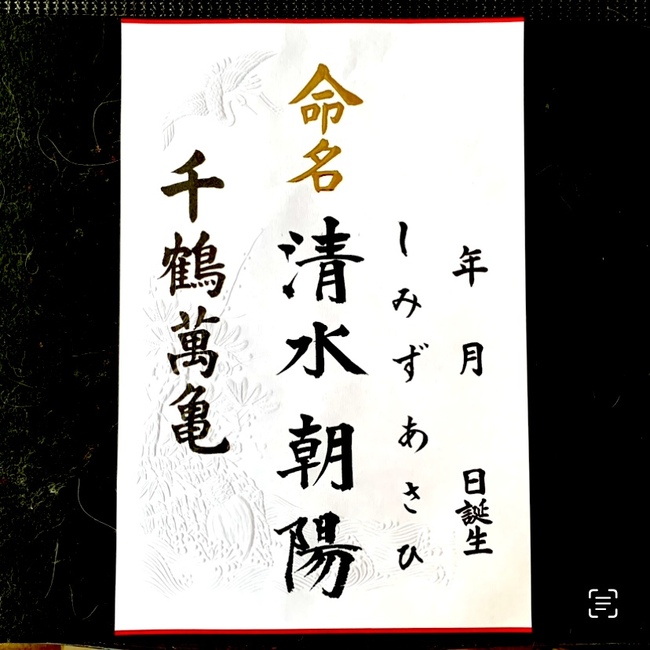 年 月 日誕生
しみずあさひ
命名
清水朝陽
千鶴萬亀